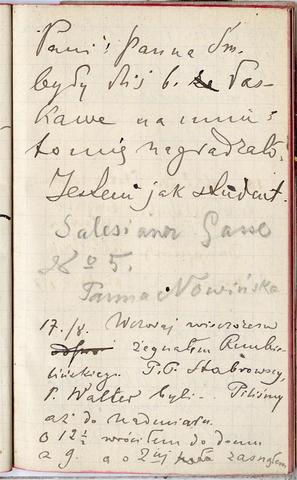 Pani i panna Sm.
były dziś b. łas-
kawe na mnie i
to mię nagradzało.
Jestem jak student.
Salesianer Gasse
No 5.
Panna Nowińska
17./8. Wczoraj wieczorem
żegnałem Rembie-
lińskiego. P.P. Stabrowscy,
P. Walter byli. Piliśmy
aż do nadmiaru.
O 12½ wróciłem do domu
a g. a o 2iej zasnąłem